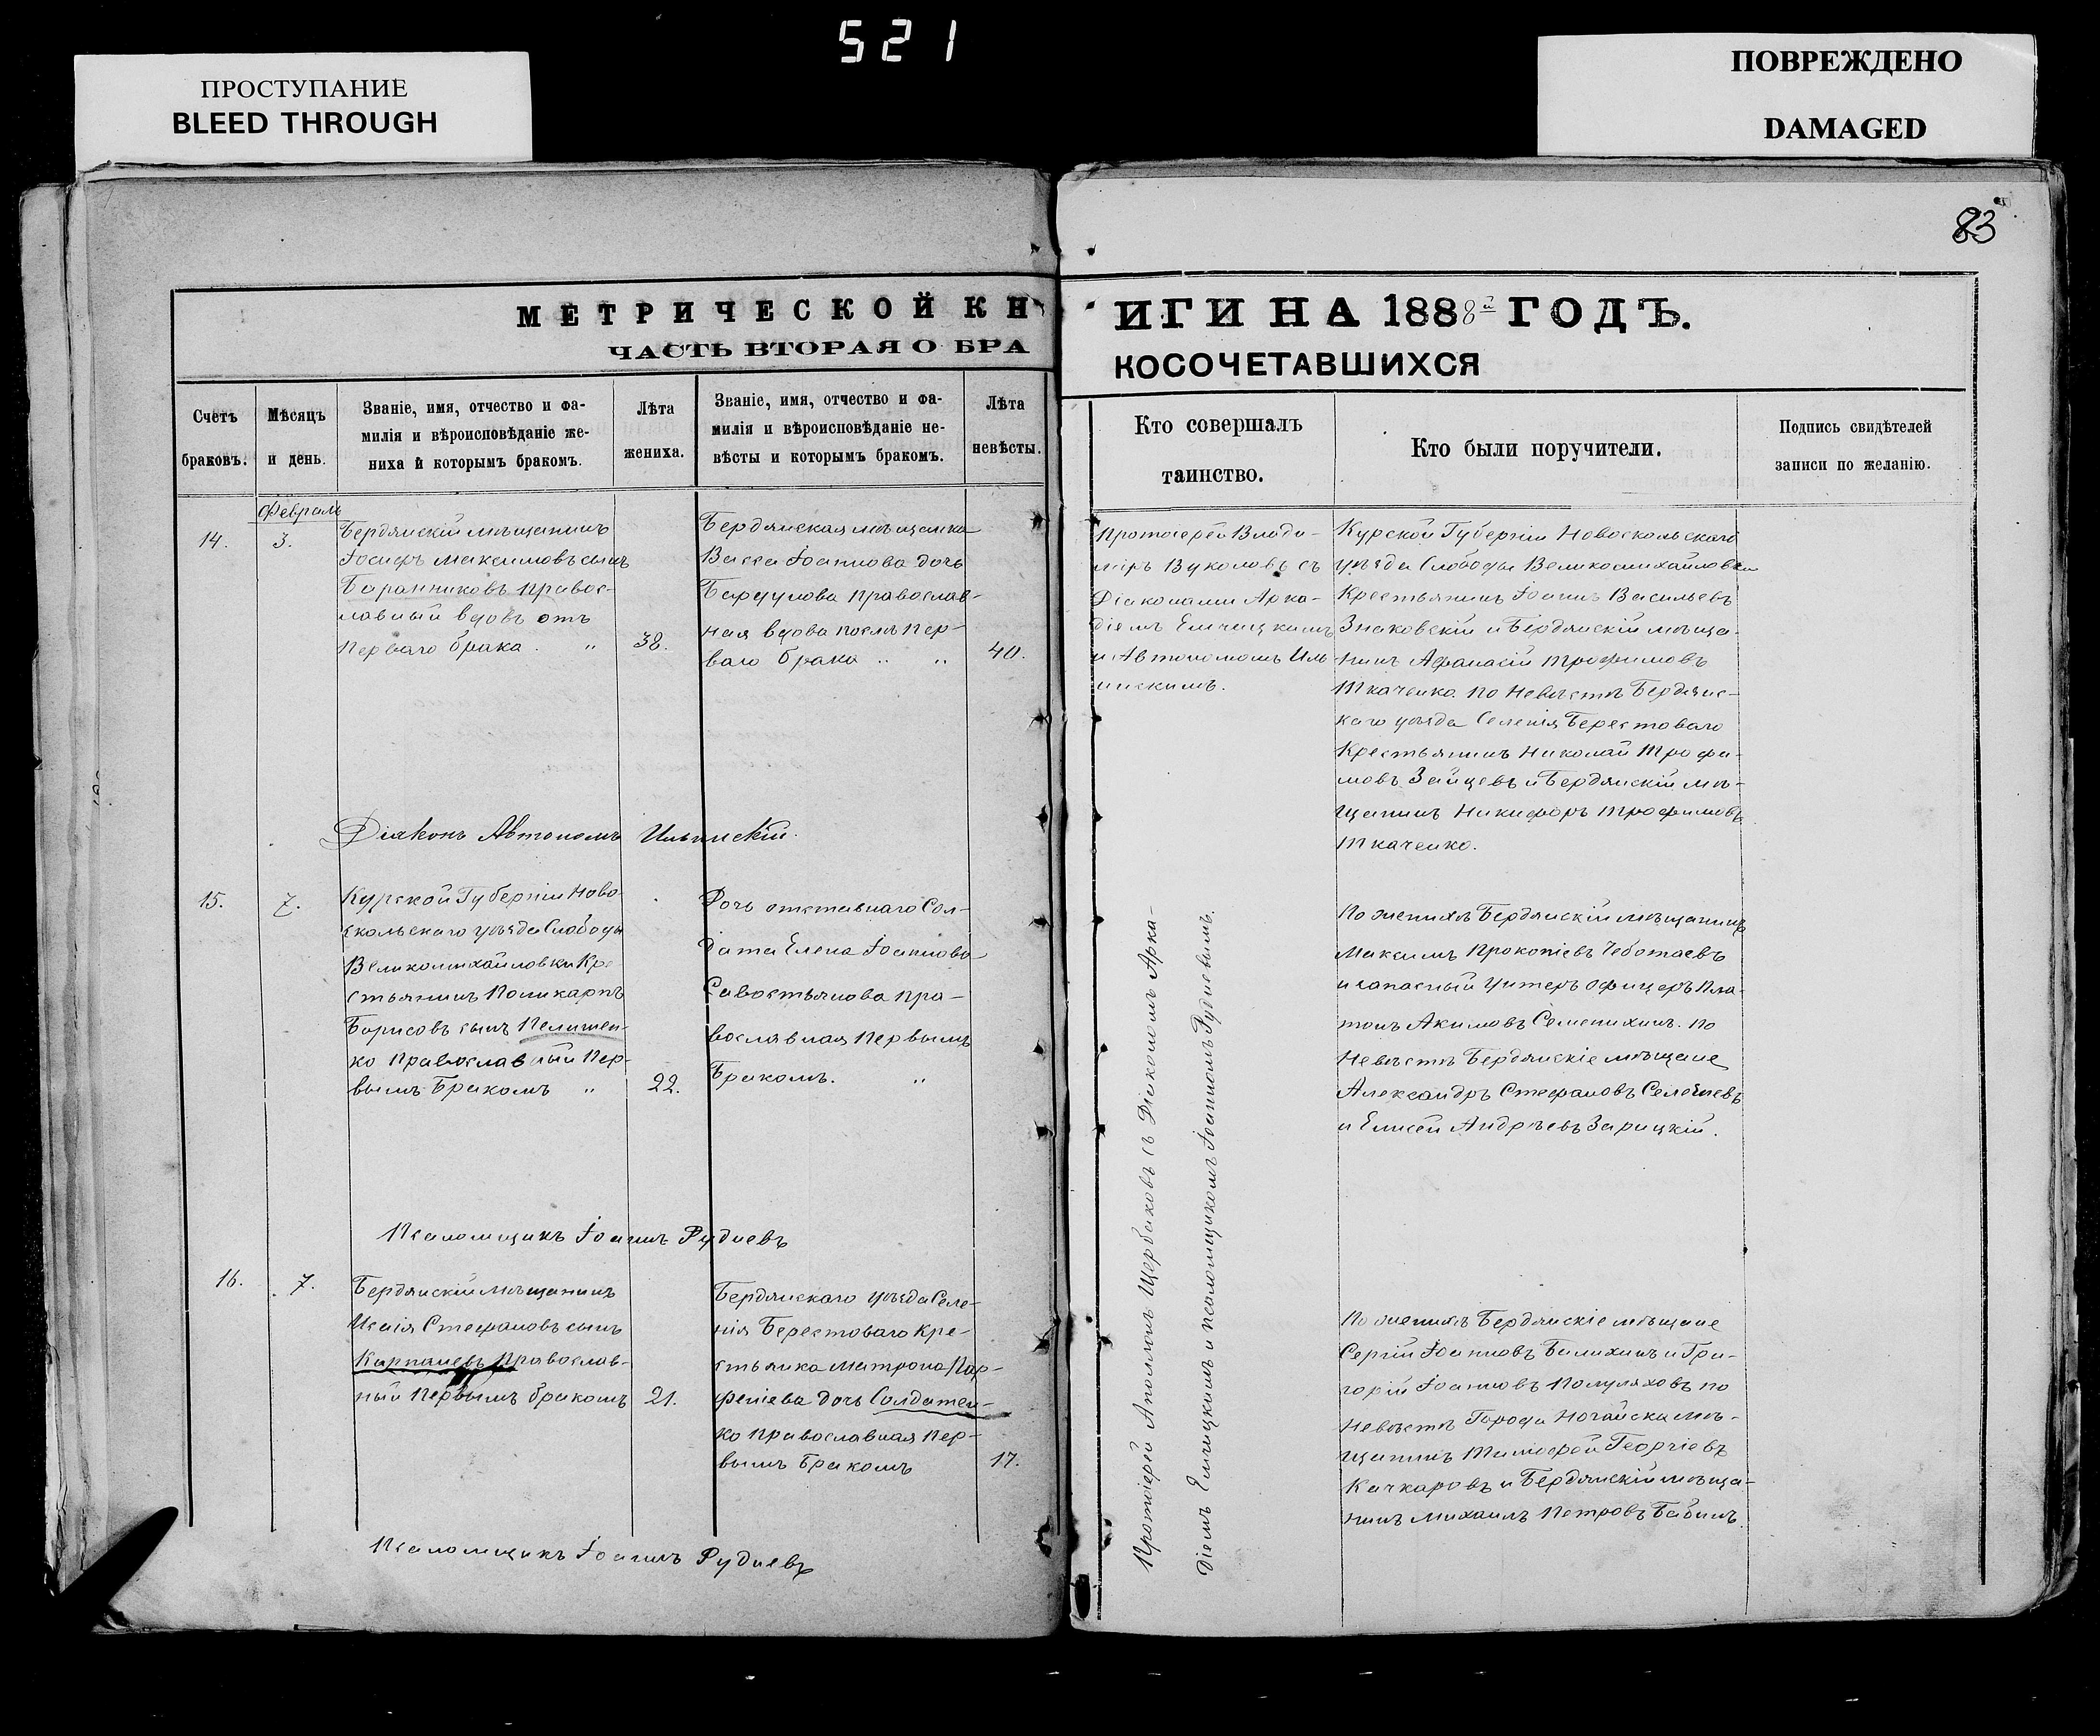 521
ПРОСТУПАНИЕ
BLEED THROUGH
ПОВРЕЖДЕНО
DAMAGED
83
МЕТРИЧЕСКОЙ КН
ЧАСТЬ ВТОРАЯ О БРА
ИГИ НА 1888й ГОДЪ.
КОСОЧЕТАВШИХСЯ
Счетъ
браковъ.
Мѣсяцъ
и день.
Званіе, имя, отчество и фа-
милія и вѣроисповѣданіе же-
ниха и которымъ бракомъ.
Лѣта
жениха.
Званіе, имя, отчество и фа-
милія и вѣроисповѣданіе не-
вѣсты и которымъ бракомъ.
Лѣта
невѣсты.
Кто совершалъ
таинство.
Кто были поручители.
Подпись свидѣтелей
записи по желанію.
Февраль
14.
3.
Бердянскій мѣщанинъ
Іосифъ Максимовъ сынъ
Баранниковъ правос-
лавный вдовъ отъ
перваго брака . "
38.
Бердянская мѣщанка
Васса Іоаннова дочь
православ-
ная вдова послѣ пер-
ваго брака " "
40.
Протоіерей Влади-
міръ Вуколовъ съ
Діаконами Арка-
діемъ Емчицкимъ
и Автономомъ Иль-
инскимъ.
Курской Губерніи Новоскольскаго
уѣзда Слободы Великомихайловки
Крестьянинъ Іоаннъ Васильевъ
Знаковскій и Бердянскій мѣща-
нинъ Афанасій Трофимовъ
Ткаченко. По Невѣстѣ Бердянс-
каго уѣзда Селенія Берестоваго
Крестьянинъ Николай Трофи-
мовъ Зайцевъ и Бердянскій мѣ-
щанинъ Никифоръ Трофимовъ
Ткаченко.
Діаконъ Автономъ Ильинскій.
15.
7.
Курской Губерніи Ново-
скольскаго уѣзда Слободы
Великомихайловки Кре-
стьянинъ Поликарпъ
Борисовъ сынъ Пелишен-
ко Православный Пер-
вымъ Бракомъ "
22.
Дочь отставнаго Сол-
дата Елена Іоаннова
Савостьянова пра-
вославная Первымъ
Бракомъ. "
Протоіерей Аполлонъ Щербаковъ съ Діакономъ Арка-
діемъ Емчицкимъ и псаломщикомъ Іоанномъ Рудневымъ.
По женихѣ Бердянскій мѣщанинъ
Максимъ Прокопіевъ Чеботаевъ
и запасный Унтеръ офицеръ Пла-
тонъ Акимовъ Семенихинъ. По
Невѣстѣ Бердянскіе мѣщане
Александръ Стефановъ
и Елисей Андрѣевъ Зарицкій.
Псаломщикъ Іоаннъ Рудневъ
16.
7.
Бердянскій мѣщанинъ
Исаія Стефановъ сынъ
Карпачевъ Православ-
ный Первымъ бракомъ
21.
Бердянскаго уѣзда Селе-
нія Берестоваго Кре-
стьянка Матрона Пар-
феніева дочь Солдатен-
ко Православная Пер-
вымъ Бракомъ
17.
По женихѣ Бердянскіе мѣщане
Сергій Іоанновъ Балихинъ и Гри-
горій Іоанновъ Полуляховъ по
Невѣстѣ Города Ногайска мѣ-
щанинъ Тимофей Георгіевъ
Качкаровъ и Бердянскій мѣща-
нинъ Михаилъ Петровъ Бабинъ
Псаломщикъ Іоаннъ Рудневъ